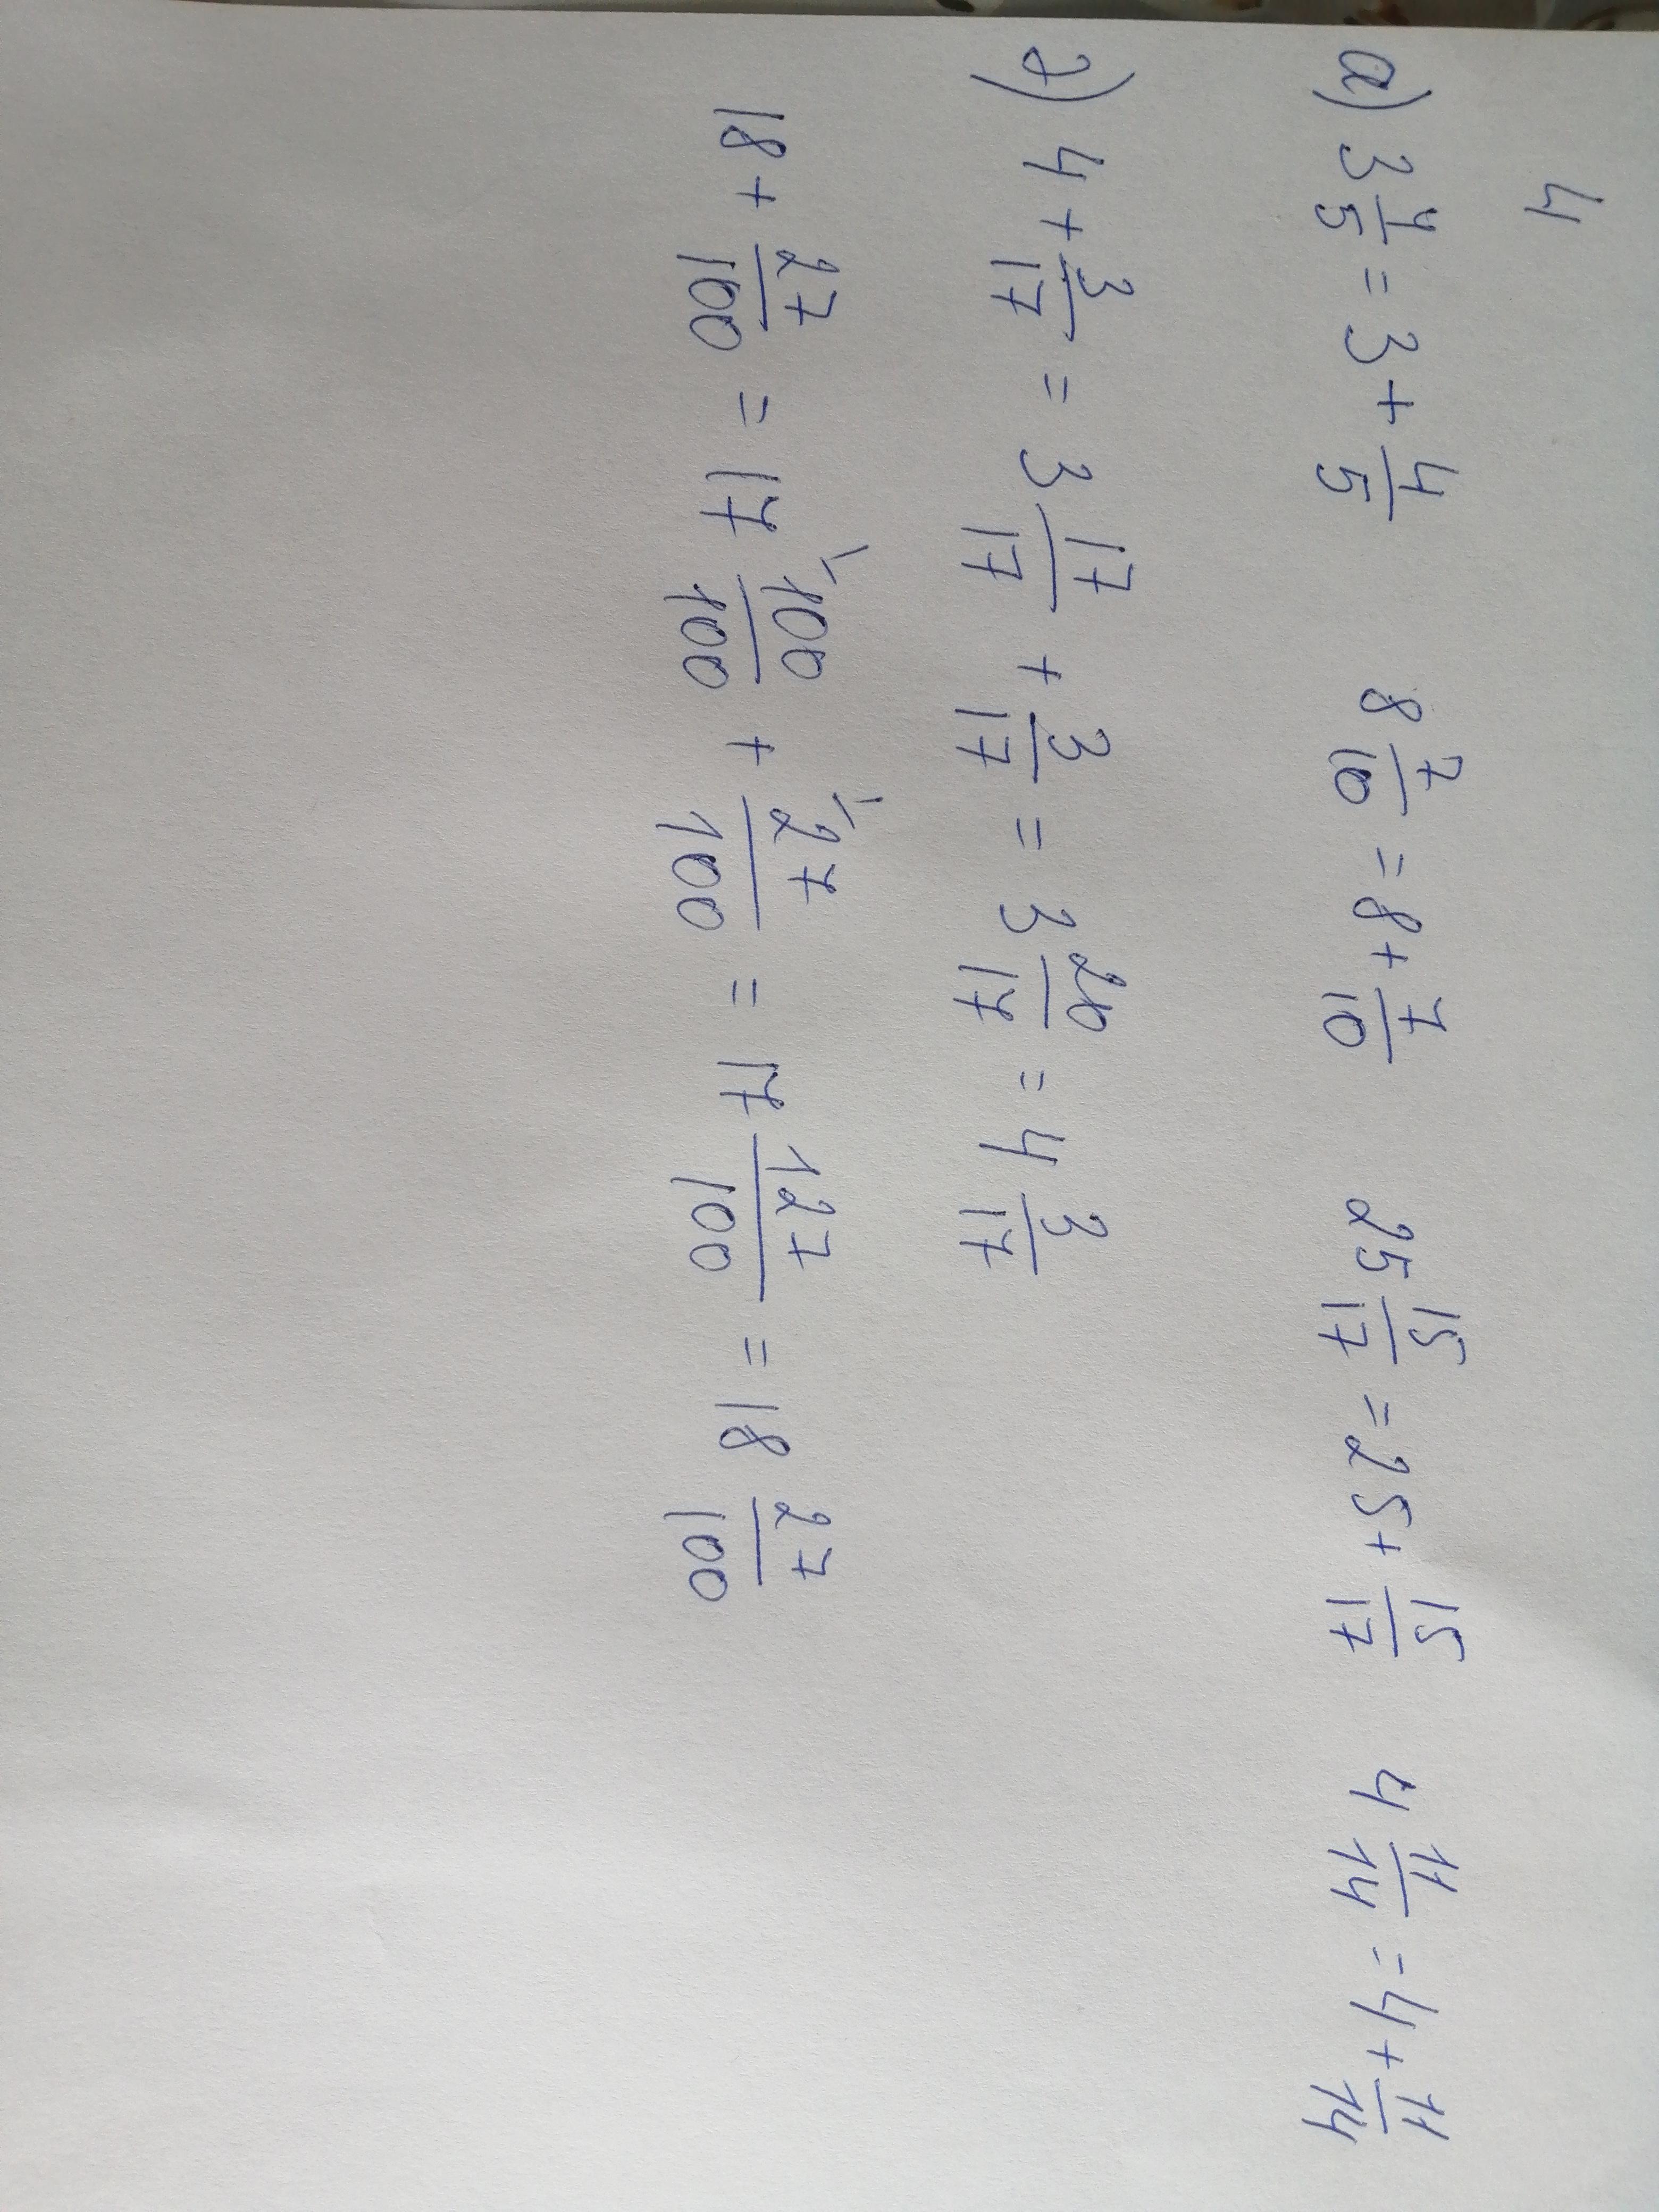 4
а) 3 4/5 = 3 + 4/5 8 7/10 = 8 + 7/10 25 15/17 = 25 + 15/17 4 11/14 = 4 + 11/14
г) 4 + 3/17 = 3 17/17 + 3/17 = 3 20/17 = 4 3/17
18 + 27/100 = 17 100/100 + 27/100 = 17 127/100 = 18 27/100